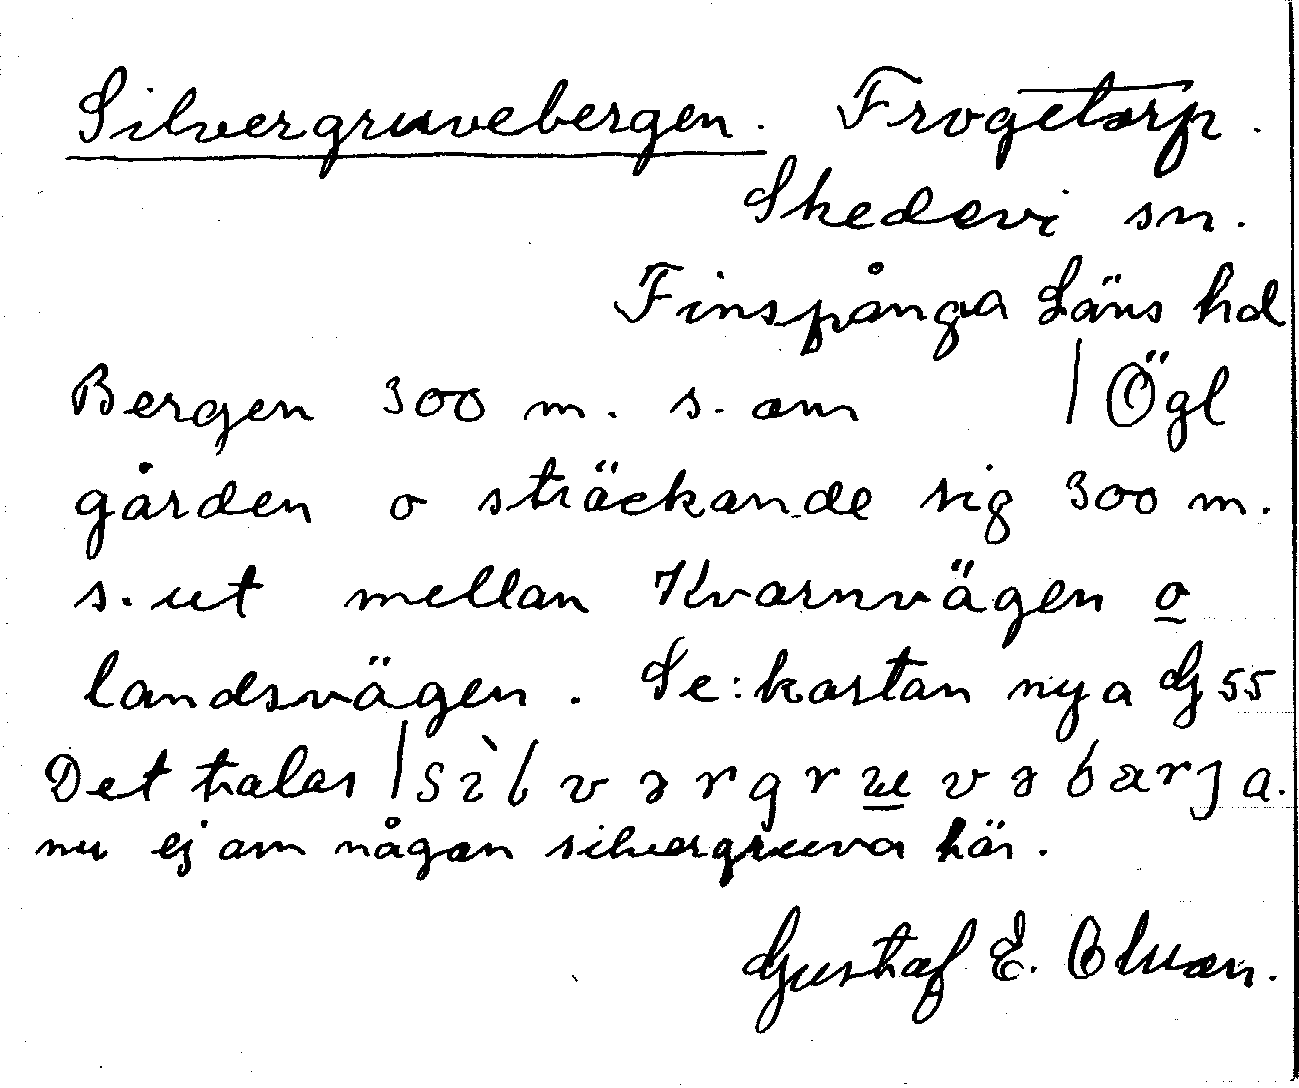 Silvergruvebergen. Frogetorp.
Skedevi sn.
Finspånga Läns hd
Bergen 300 m. s. om | Ögl
gården o sträckande sig 300 m.
s. ut mellan Kvarnvägen o
landsvägen. Se: kartan nya G 55
Det talas | sìlvərgruvəbærja.
nu ej om någon silvergruva här.
Gustaf E.